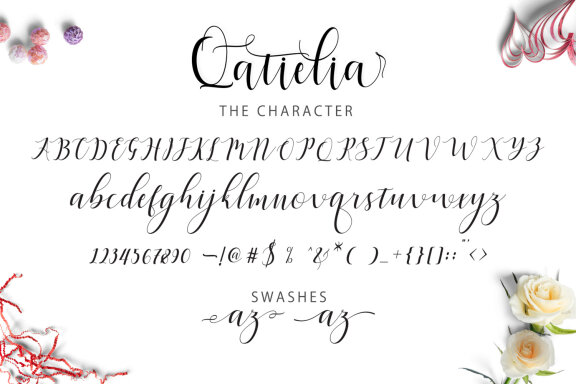 Qatielia
THE CHARACTER
ABCDEGHIJKLMNOPQRSTUVWXYZ
abcdefghijklmnovqrstuvwxyz
1234567890 ~!@#$ % ^&*( )_+{}[]:: "' <>
SWASHES
az az